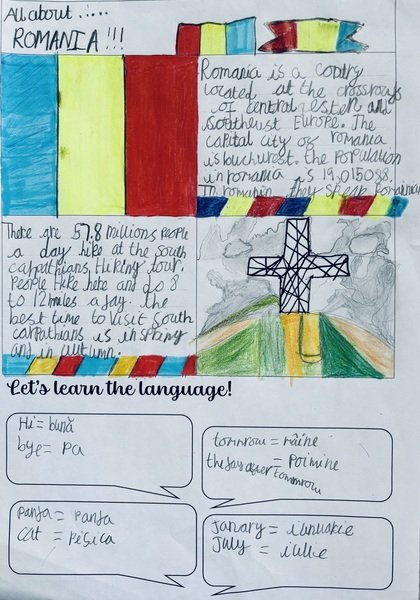 All about.....
ROMANIA!!!
Romania is a contry
located at the crossroads
of central estern and
southeust Europe. The
capital city of romania
is buchurest. the population
in romania is 19,015088.
In romania they speak Romainian
There are 57.8 millions people
a day hike at the south
calpathians Hiking tour.
People hike here and do 8
to 12 miles a day. the
best time to visit south
carpathians is in spring
and in autumn.
Let's learn the language!
Hi = bună
bye = pa
tommrow = mâine
the day after tommrow = poimine
panda = panda
cat = pisica
Janary = ianuarie
July = iulie